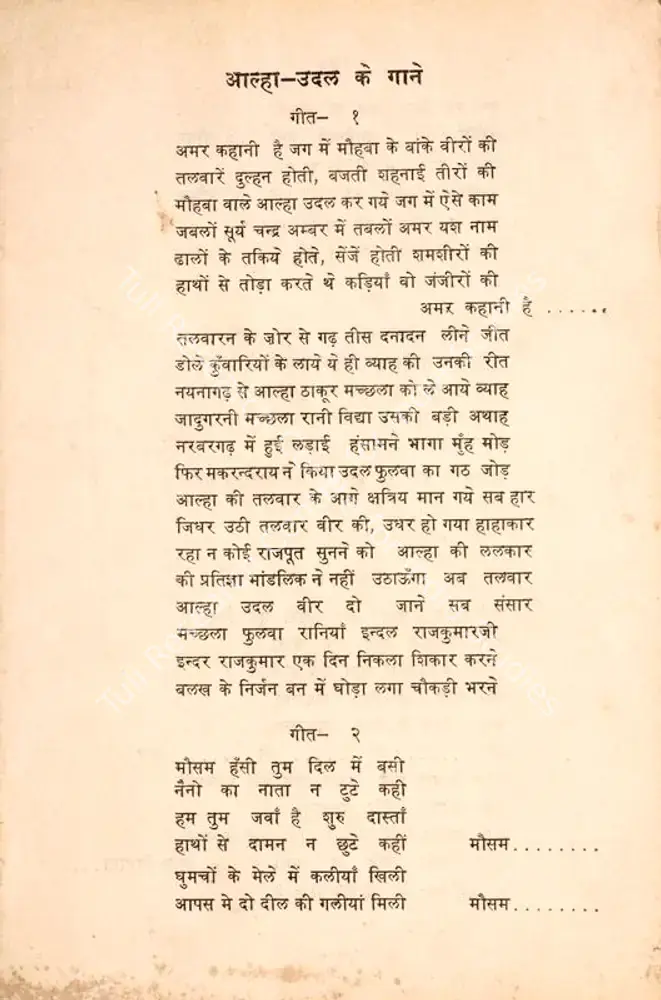 आल्हा-उदल के गाने
गीत- १
अमर कहानी है जग में मौहबा के बांके वीरों की
तलवारें दुल्हन होती, बजती शहनाई तीरों की
मौहबा वाले आल्हा उदल कर गये जग में ऐसे काम
जबलों सूर्य चन्द्र अम्बर में तबलों अमर यश नाम
ढालों के तकिये होते, सेंजें होती शमशीरों की
हाथों से तोड़ा करते थे कड़ियाँ वो जंजीरों की
अमर कहानी है ......
तलवारन के ज़ोर से गढ़ तीस दनादन लीने जीत
डोले कुँवारियों के लाये ये ही व्याह की उनकी रीत
नयनागढ़ से आल्हा ठाकूर मच्छला को ले आये व्याह
जादुगरनी मच्छला रानी विद्या उसकी बड़ी अथाह
नरबरगढ़ में हुई लड़ाई हंसामने भागा मुंह मोड़
फिर मकरन्दराय ने किया उदल फुलवा का गठ जोड़
आल्हा की तलवार के आगे क्षत्रिय मान गये सब हार
जिधर उठी तलवार वीर की, उधर हो गया हाहाकार
रहा न कोई राजपूत सुनने को आल्हा की ललकार
की प्रतिज्ञा मांडलिक ने नहीं उठाऊँगा अब तलवार
आल्हा उदल वीर दो जाने सब संसार
मच्छला फुलवा रानियाँ इन्दल राजकुमारजी
इन्दर राजकुमार एक दिन निकला शिकार करने
बलख के निर्जन बन में घोड़ा लगा चौकड़ी भरने
गीत- २
मौसम हँसी तुम दिल में बसी
नैनो का नाता न टुटे कही
हम तुम जवाँ है शुरु दास्ताँ
हाथों से दामन न छुटे कहीं मौसम........
घुमचों के मेले में कलीयाँ खिली
आपस मे दो दील की गलीयां मिली मौसम........